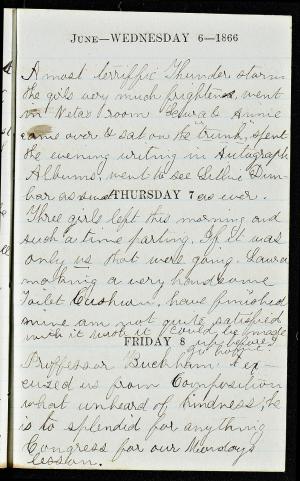 June—WEDNESDAY 6—1866
A most terriffic Thunder storm
the girls very much frightened, went
in Netas room Annie
came over & sat on the trunk, spent
the evening writing in Autograph
Albums, went to see Lillie Dun-
bar as as ever.
THURSDAY 7
Three girls left this morning and
such a time parting. If it was
only us that were going. Laura
making a very handsome
Toilet Cushion, have finished
mine am not quite satisfied
with it wish it could be made
up before I
go home.
FRIDAY 8
Proffessor Buckham ex-
cuized us from Composition
what unheard of kindness; he
is to splendid for anything
Congress for our Mondays
lesson.